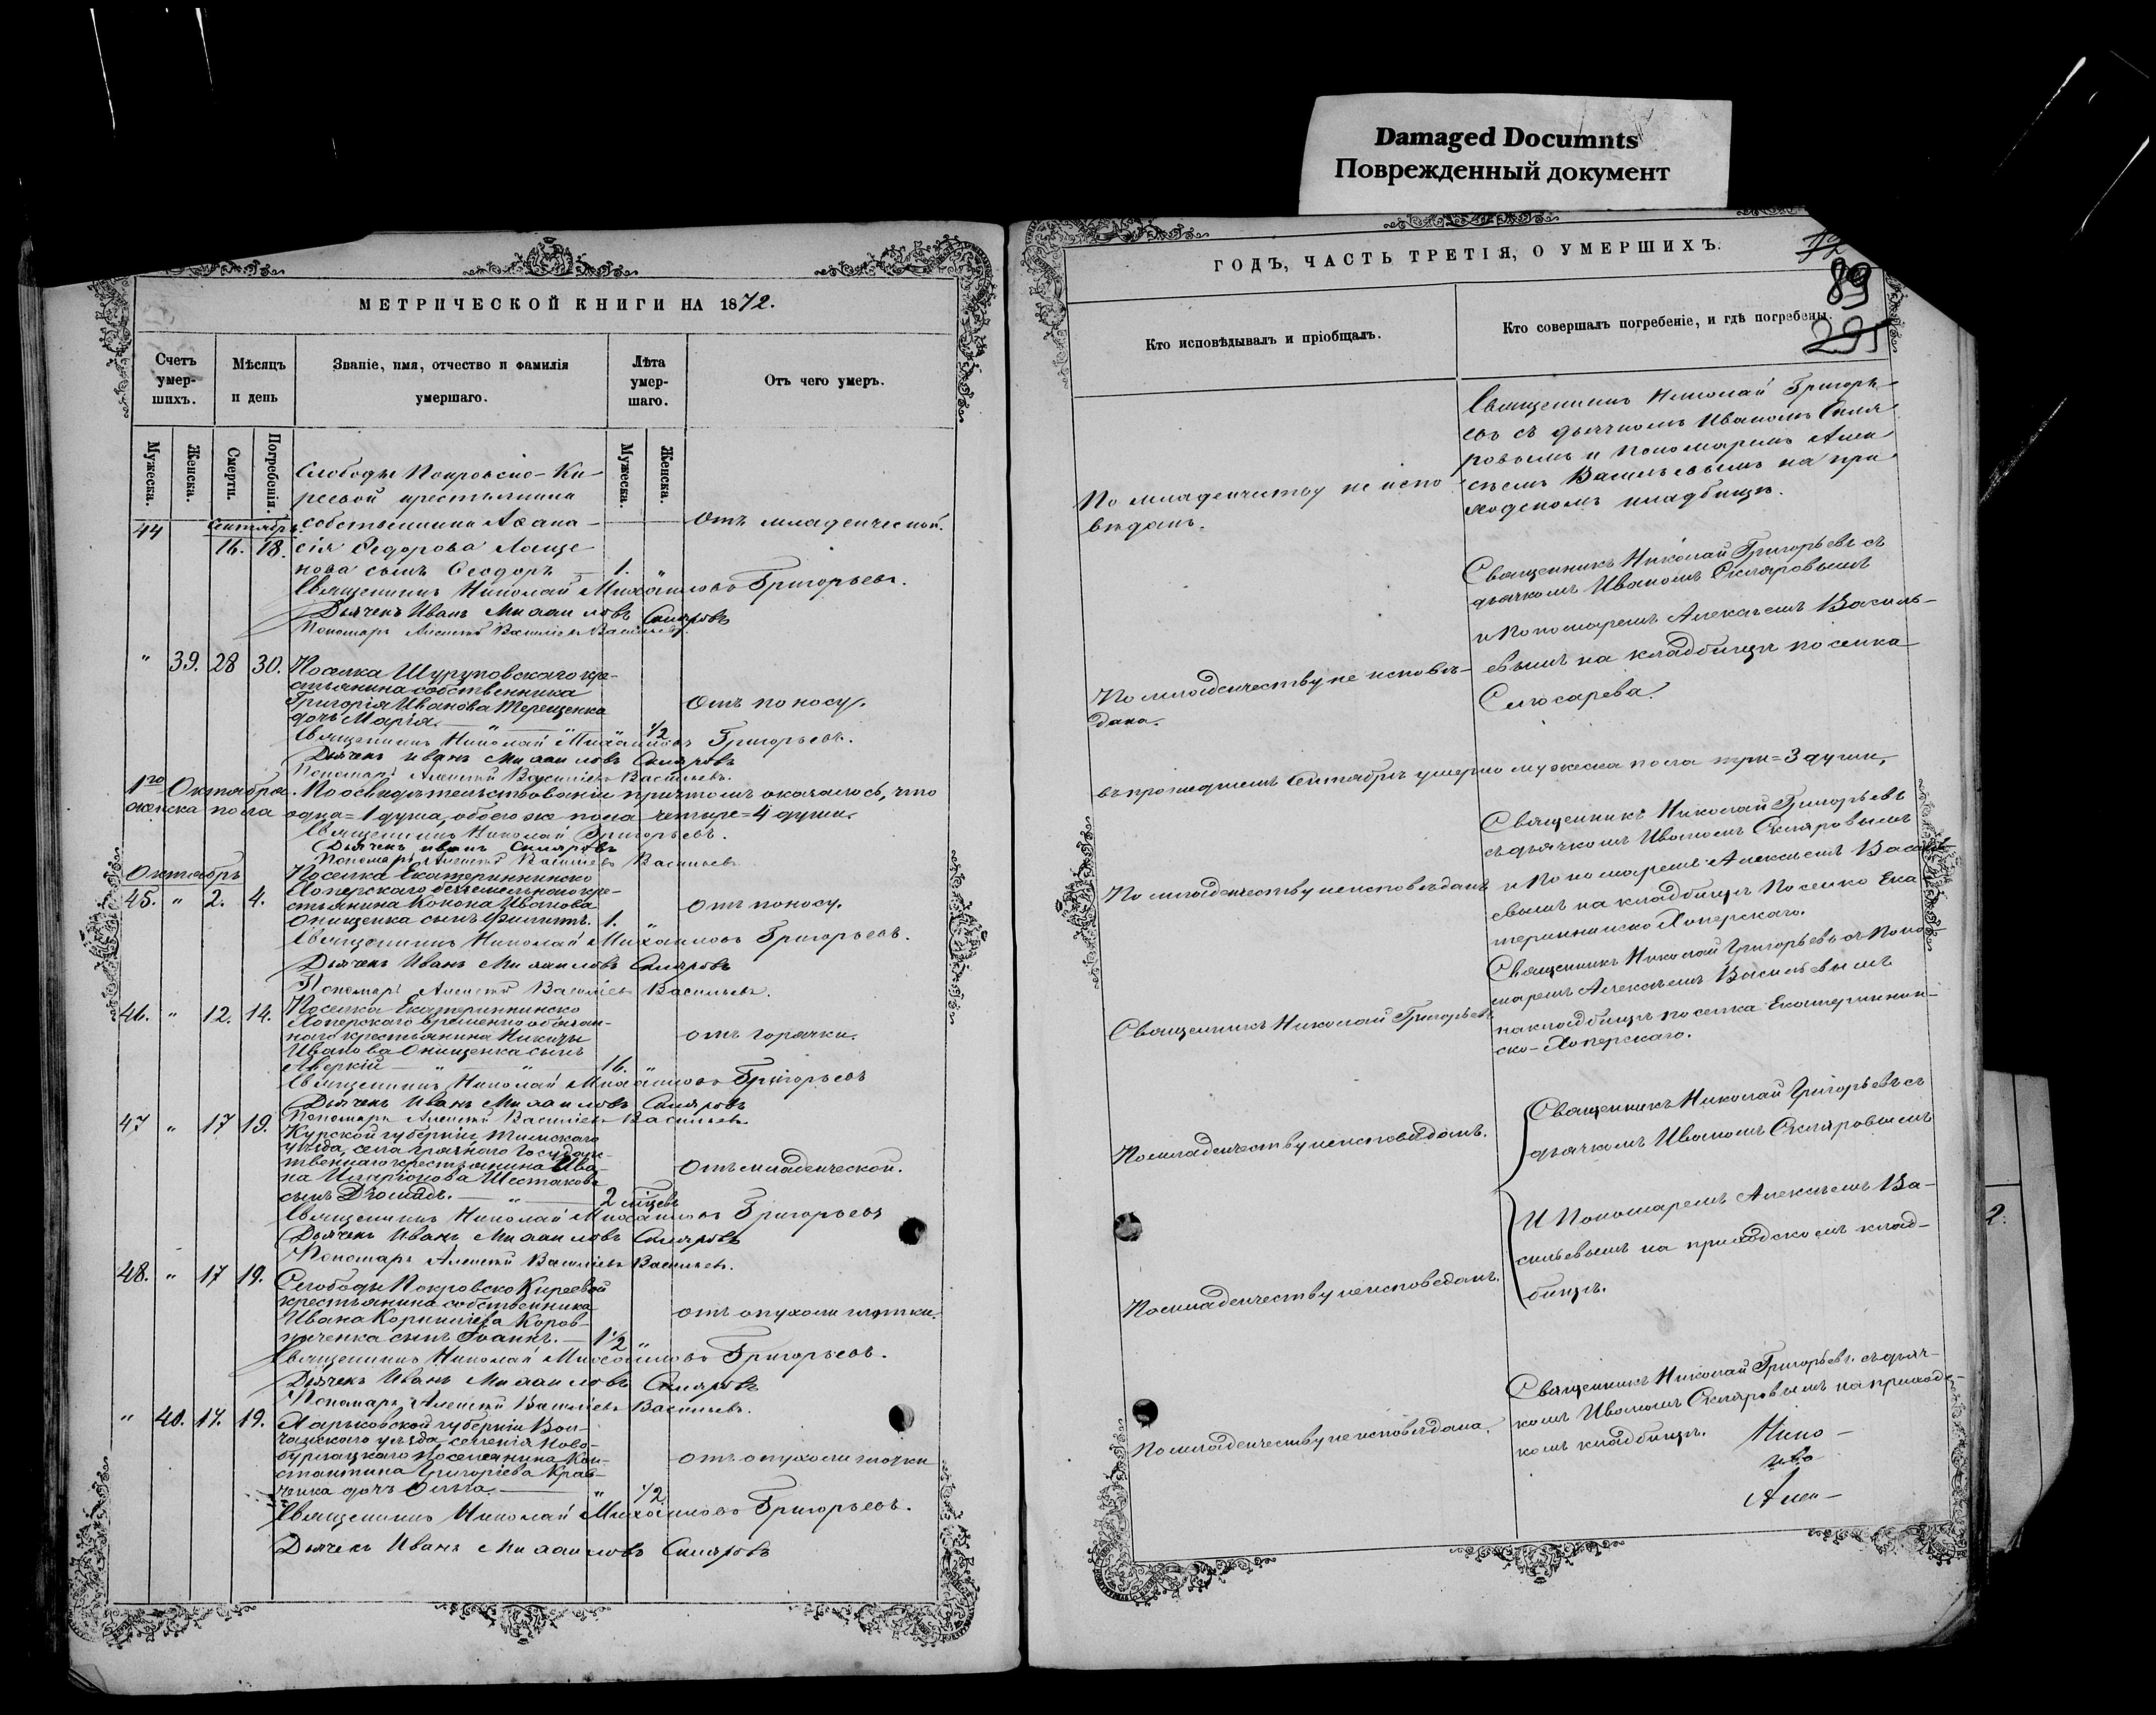 Damaged Documnts
Поврежденный документ
МЕТРИЧЕСКОЙ КНИГИ НА 1872.
Счетъ умер-шихъ.
Мѣсяцъ и день
Званіе, имя, отчество и фамилія умершаго.
Лѣта умер-шаго.
Отъ чего умеръ.
Мужеска.
Женска.
Смерти.
Погребенія.
Мужеска.
Женска.
Слободы Покровско-Ки-
реевой крестьянина
44 Сентябрь собственника Афана- Отъ младенческой.
16. 18. сія Федорова Лаще-
нова сынъ Феодоръ — 1. "
Священникъ Николай Михаиловъ Григорьевъ.
Дьячекъ Иванъ Михаиловъ Скляровъ
Пономарь Алексѣй Васильевъ Васильевъ.
" 39. 28 30. Поселка Шуруповскаго кре-
стьянина собственника
Григорія Иванова Терещенка Отъ поносу.
дочь Марія. — " — " 1/2
Священникъ Николай Михаиловъ Григорьевъ.
Дьячекъ Иванъ Михаиловъ Скляровъ
Пономарь Алексѣй Васильевъ Васильевъ.
1го Октября. По освидѣтельствованіи причтомъ оказалось, что
женска пола одна=1 душа, обоего же пола четыре=4 души.
Священникъ Николай Григорьевъ.
Дьячекъ Иванъ Скляровъ
Пономарь Алексѣй Васильевъ Васильевъ.
Октябрь Поселка Екатериннинско
Хоперскаго безземельнаго кре-
45. " 2. 4. стьянина Конона Иванова Отъ поносу.
Онищенка сынъ Филиппъ. 1. "
Священникъ Николай Михаиловъ Григорьевъ.
Дьячекъ Иванъ Михаиловъ Скляровъ
Пономарь Алексѣй Васильевъ Васильевъ.
46. " 12. 14. Поселка Екатериннинско
Хоперскаго временно обязан-
наго крестьянина Никиты отъ горячки.
Иванова Онищенка сынъ
Аверкій — " — " — 16. "
Священникъ Николай Михаиловъ Григорьевъ
Дьячекъ Иванъ Михаиловъ Скляровъ
Пономарь Алексѣй Васильевъ Васильевъ.
47 " 17 19. Курской губерніи Тимскаго
уѣзда, села Грязнаго Государс-
твеннаго крестьянина Ива- Отъ младенческой.
на Иларіонова Шестакова
сынъ Діомидъ. — " — 2 мѣсяцевъ
Священникъ Николай Михаиловъ Григорьевъ
Дьячекъ Иванъ Михаиловъ Скляровъ
Пономарь Алексѣй Васильевъ Васильевъ.
48. " 17 19. Слободы Покровско Киреевой
крестьянина собственника
Ивана Корнильева Коров- отъ опухоли глотки.
ниченка сынъ Іоаннъ. — 1 1/2 "
Священникъ Николай Михаиловъ Григорьевъ.
Дьячекъ Иванъ Михаиловъ Скляровъ
Пономарь Алексѣй Васильевъ Васильевъ.
" 40. 17. 19. Харьковской губерніи Вол-
чанскаго уѣзда селенія Ново-
бурлацкаго Поселянина Кон- отъ опухоли глотки
стантина Григоріева Крав-
ченка дочь Ольга. — " 1/2
Священникъ Николай Михаиловъ Григорьевъ.
Дьячекъ Иванъ Михаиловъ Скляровъ
ГОДЪ, ЧАСТЬ ТРЕТІЯ, О УМЕРШИХЪ.
89
295
Кто исповѣдывалъ и пріобщалъ.
Кто совершалъ погребеніе, и гдѣ погребены.
По младенчеству не испо-
вѣданъ.
Священникъ Николай Григорь-
евъ съ дьячкомъ Иваномъ Скля-
ровымъ и Пономаремъ Алек-
сѣемъ Васильевымъ на при-
ходскомъ кладбищѣ.
По младенчеству не исповѣ-
дана.
Священникъ Николай Григорьевъ съ
дьячкомъ Иваномъ Скляровымъ
и Пономаремъ Алексѣемъ Василь-
евымъ на кладбищѣ поселка
Слюсарева.
въ прошедшемъ Сентябрѣ умерло мужеска пола три=3 души,
По младенчеству неисповѣданъ
Священникъ Николай Григорьевъ
съ дьячкомъ Иваномъ Скляровымъ
и Пономаремъ Алексѣемъ Василь-
евымъ на кладбищѣ Поселка Ека-
териннинско Хоперскаго.
Священникъ Николай Григорьевъ
Священникъ Николай Григорьевъ съ Поно-
маремъ Алексѣемъ Васильевымъ
на кладбищѣ поселка Екатериннин-
ско-Хоперскаго.
По младенчеству неисповѣданъ.
Священникъ Николай Григорьевъ съ
дьячкомъ Иваномъ Скляровымъ
По младенчеству неисповѣданъ.
И Пономаремъ Алексѣемъ Ва-
сильевымъ на приходскомъ клад-
бищѣ.
По младенчеству неисповѣдана.
Священникъ Николай Григорьевъ. съ дьяч-
комъ Иваномъ Скляровымъ на приходс-
комъ кладбищѣ.
Нико-
Алек-
2.